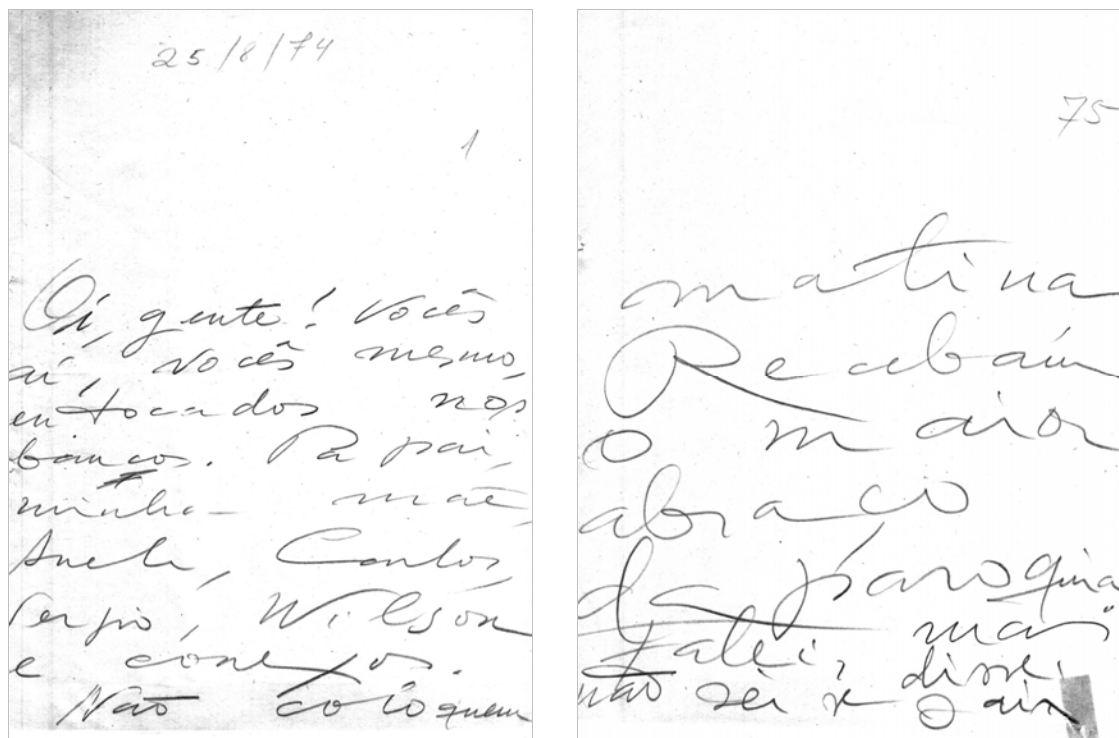 25/8/74
1
Oi, gente! Vocês
aí, vocês mesmo,
entocados nos
bancos. Papai,
minha mãe,
Carlos,
Sergio, Wilson
e conexos.
Não coloquem
75
matina
Recebam
o maior
abraço
da paroquia
Falei, mas
não sei se disse.
Jair